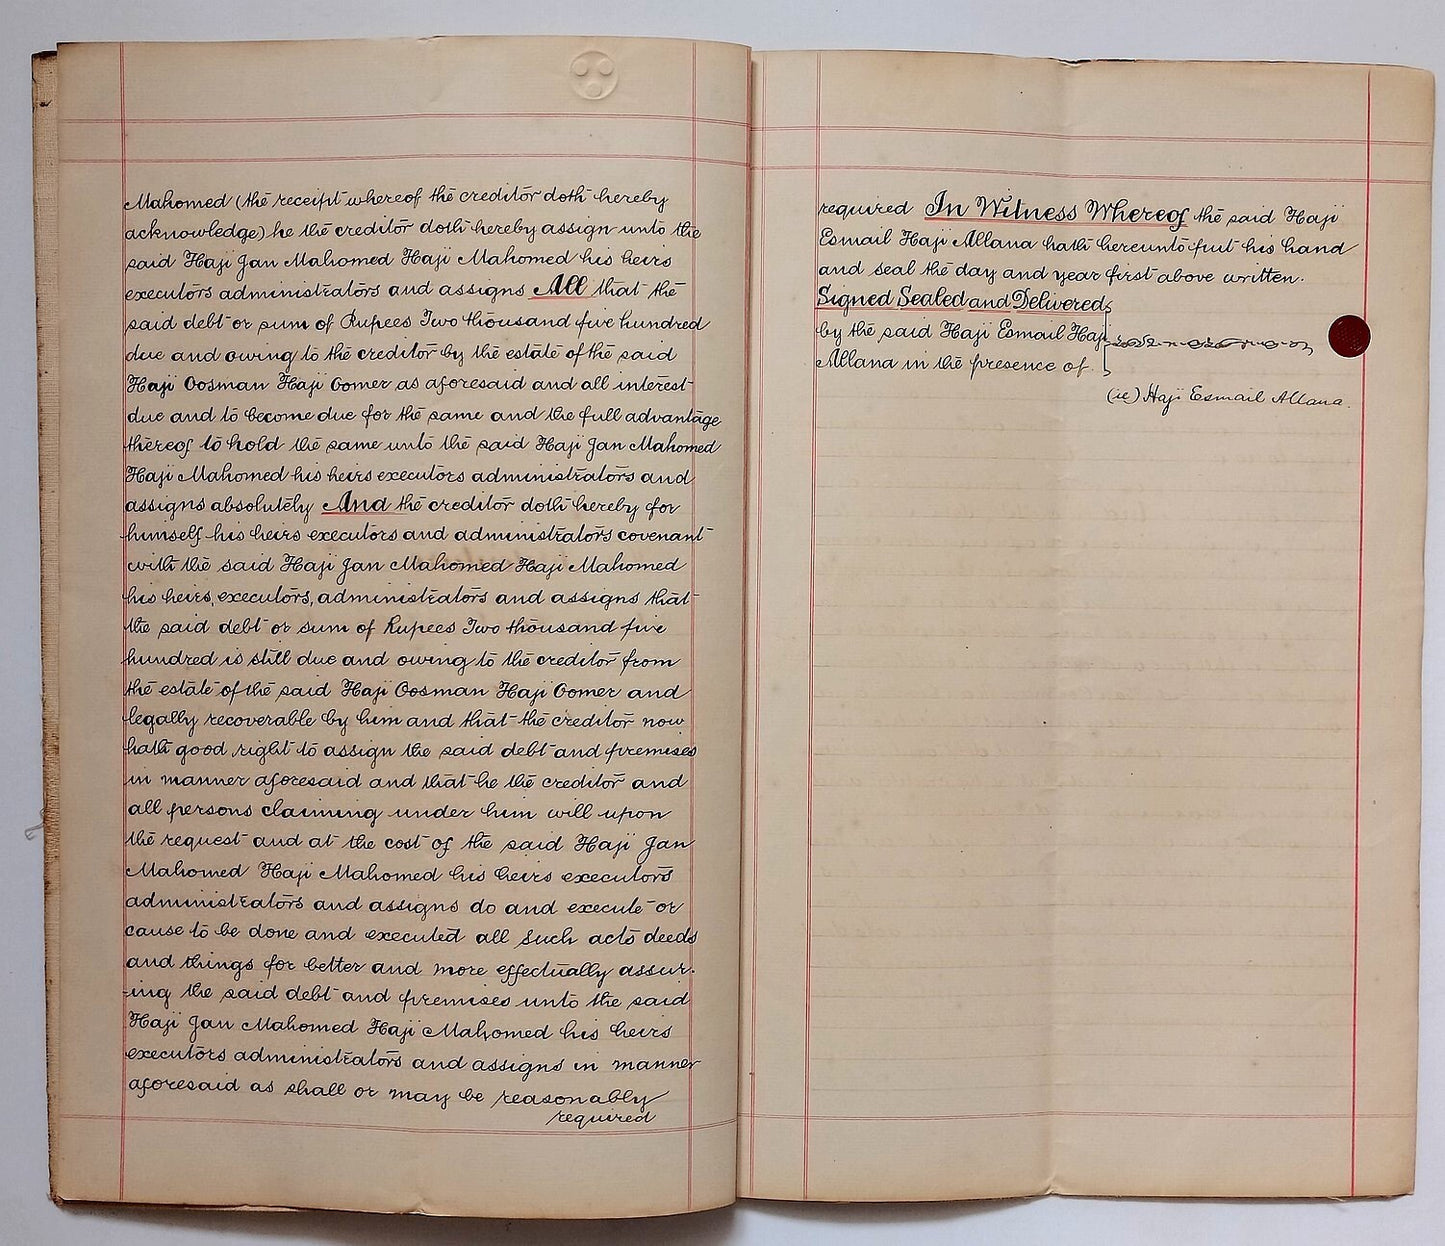 Mahomed (the receipt whereof the creditor doth hereby
acknowledge) he the creditor doth hereby assign unto the
said Haji Jan Mahomed Haji Mahomed his heirs
executors administrators and assigns All that the
said debt or sum of Rupees Two thousand five hundred
due and owing to the creditor by the estate of the said
Haji Oosman Haji Oomer as aforesaid and all interest
due and to become due for the same and the full advantage
thereof to hold the same unto the said Haji Jan Mahomed
Haji Mahomed his heirs executors administrators and
assigns absolutely And the creditor doth hereby for
himself his heirs executors and administrators covenant
with the said Haji Jan Mahomed Haji Mahomed
his heirs, executors, administrators and assigns that
the said debt or sum of Rupees Two thousand five
hundred is still due and owing to the creditor from
the estate of the said Haji Oosman Haji Oomer and
legally recoverable by him and that the creditor now
hath good right to assign the said debt and premises
in manner aforesaid and that he the creditor and
all persons claiming under him will upon
the request and at the cost of the said Haji Jan
Mahomed Haji Mahomed his heirs executors
administrators and assigns do and execute or
cause to be done and executed all such acts deeds
and things for better and more effectually assur-
-ing the said debt and premises unto the said
Haji Jan Mahomed Haji Mahomed his heirs
executors administrators and assigns in manner
aforesaid as shall or may be reasonably
required
required In Witness Whereof the said Haji
Esmail Haji Allana hath hereunto put his hand
and seal the day and year first above written.
Signed Sealed and Delivered
by the said Haji Esmail Haji
Allana in the presence of
(ie) Haji Esmail Allana.